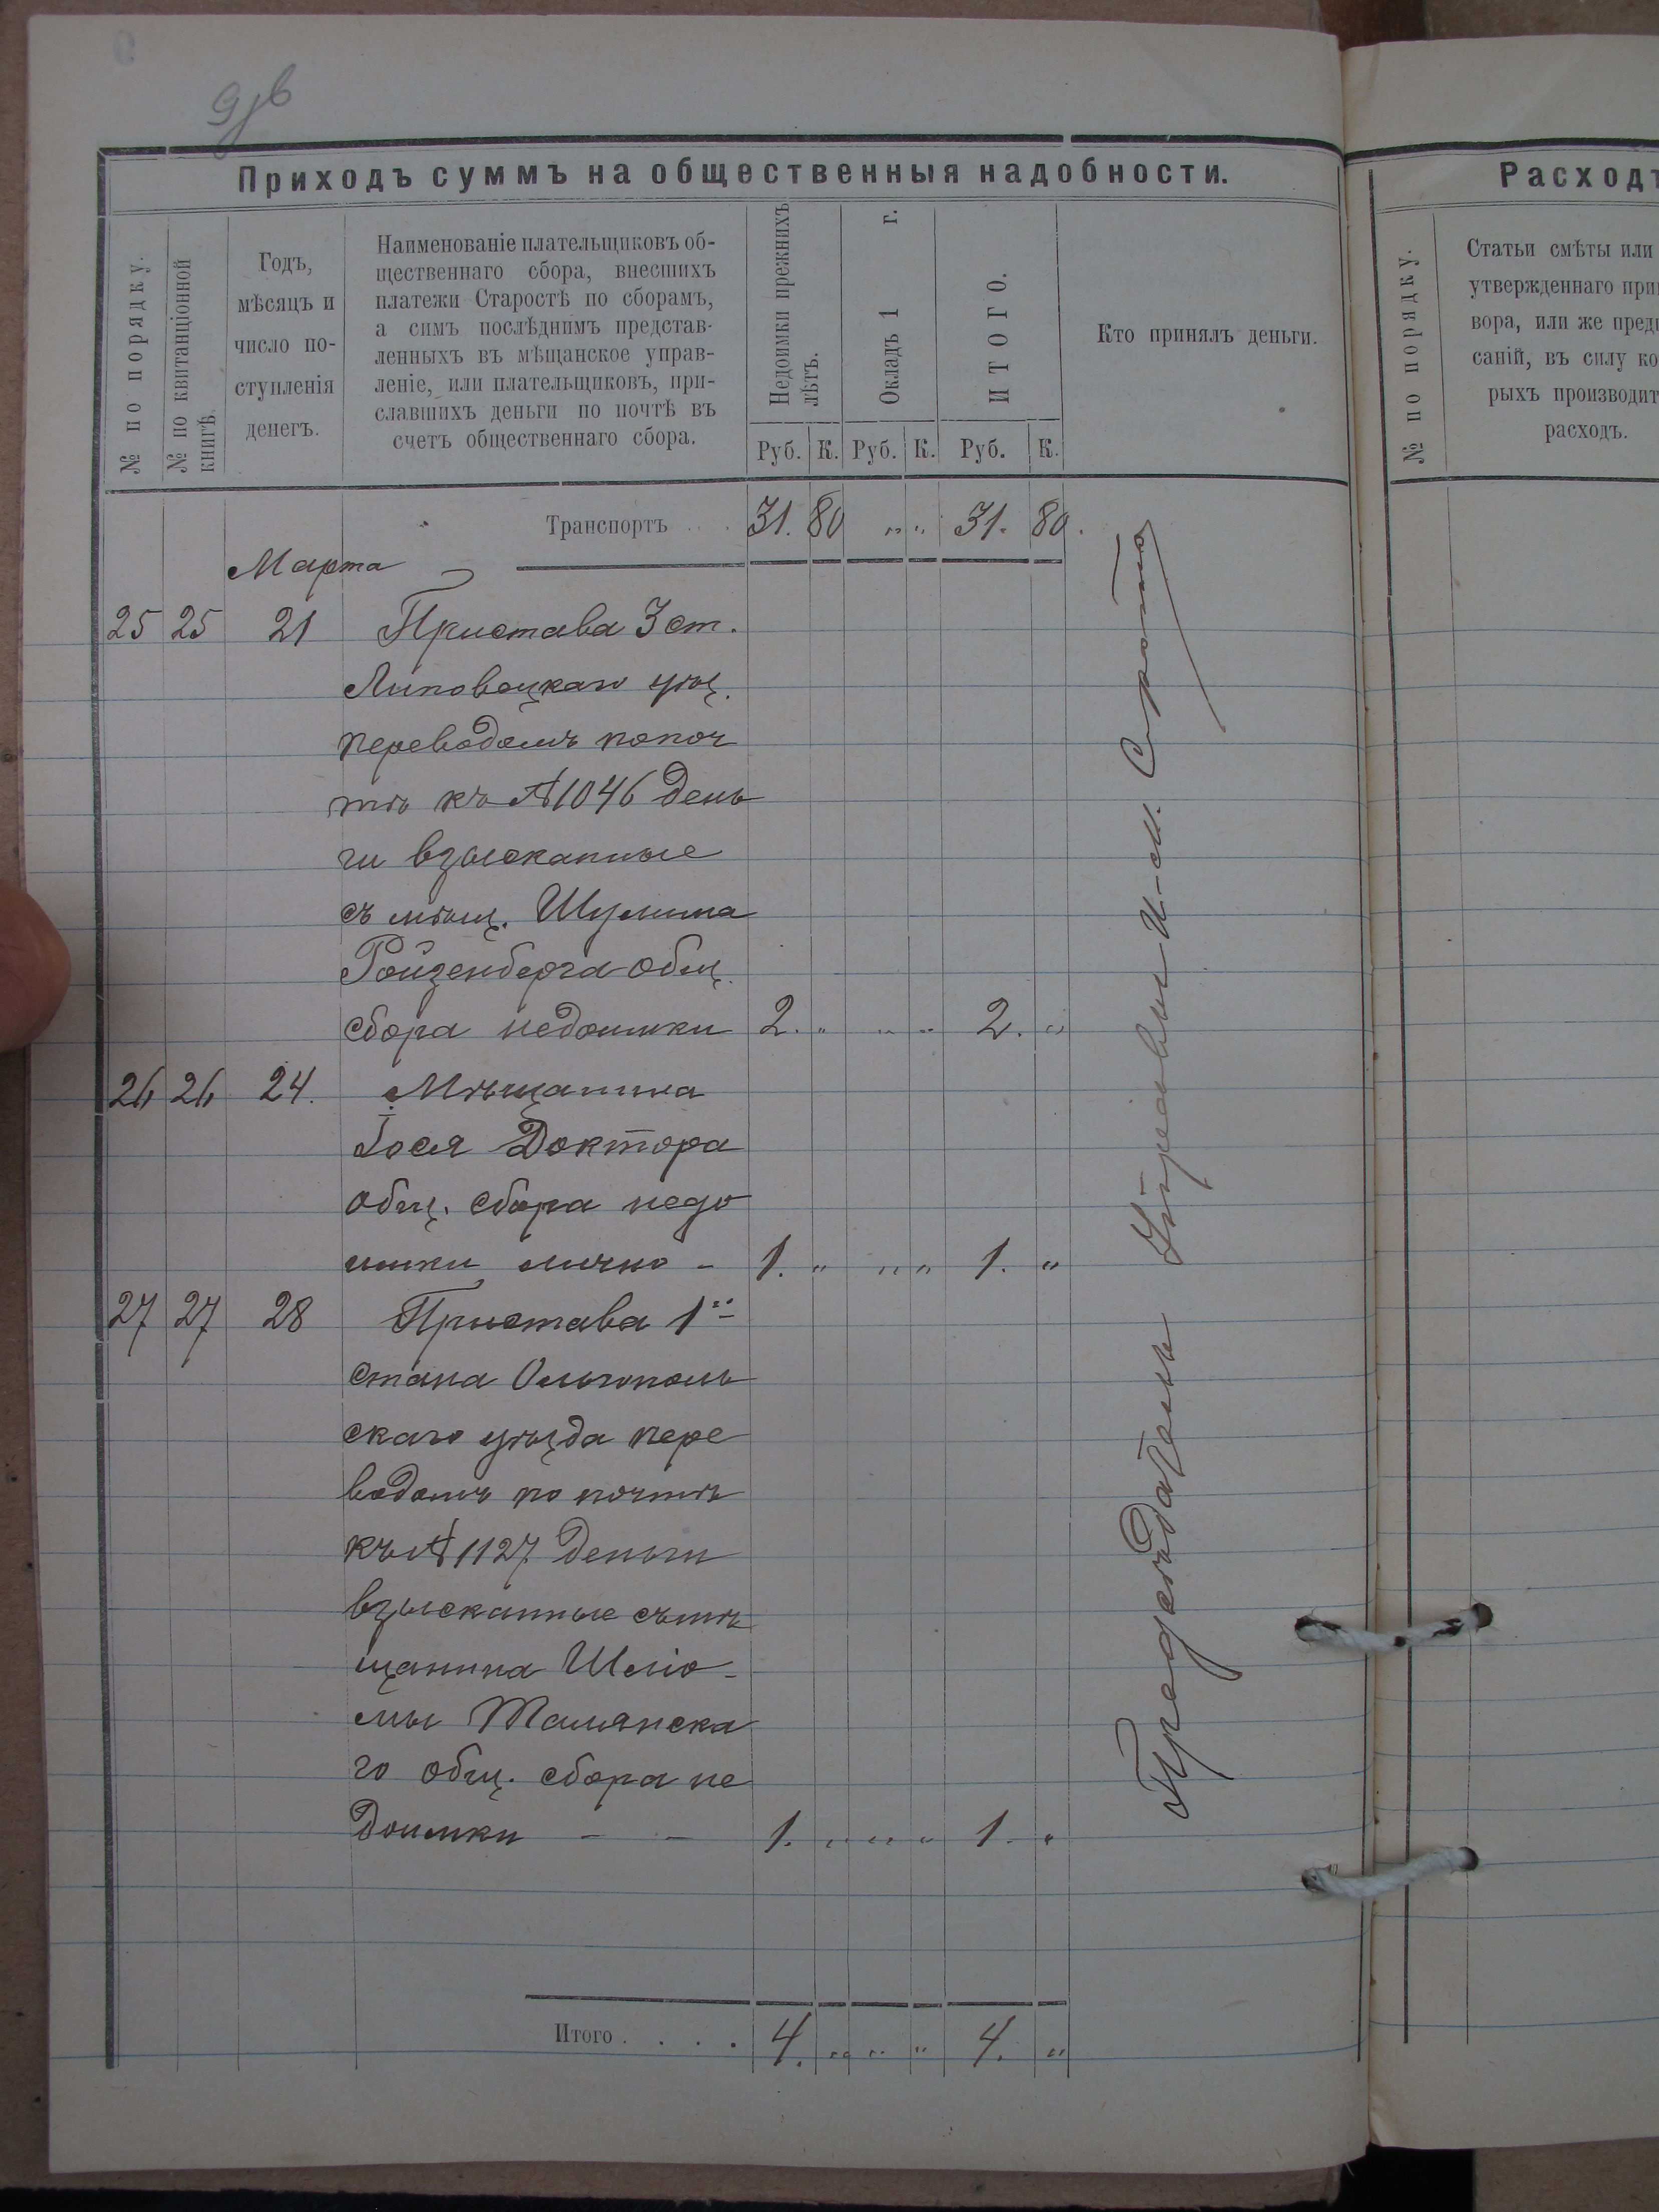 9об
Приходъ суммъ на общественныя надобности.
№ по порядку.
№ по квитанціонной
книгѣ.
Годъ,
мѣсяцъ и
число по-
ступленія
денегъ.
Наименованіе плательщиковъ об-
щественнаго сбора, внесшихъ
платежи Старостѣ по сборамъ,
а симъ послѣднимъ представ-
ленныхъ въ мѣщанское управ-
леніе, или плательщиковъ, при-
славшихъ деньги по почтѣ въ
счетъ общественнаго сбора.
Недоимки прежнихъ
лѣтъ.
Окладъ 1 г.
ИТОГО.
Кто принялъ деньги.
Руб. К. Руб. К. Руб. К.
Транспортъ 31. 80 „ „ 31. 80.
Марта
25 25 21 Пристава 3 ст.
Липовецкаго уѣз.
переводомъ попоч
тѣ къ № 1046 день
ги взысканные
съ мѣщ. Шулима
Ройзенберга общ.
сбора недоимки 2. „ „ „ 2. „
26 26 24. Мѣщанина
Іося Доктора
общ. сбора недо
имки лично - 1. „ „ „ 1. „
27 27 28 Пристава 1го
стана Ольгополь
скаго уѣзда пере
водомъ по почтѣ
къ № 1127 деньги
взысканные съ мѣ
щанина Шліо-
мы Талянска
го общ. сбора не
доимки - - 1. „ „ „ 1. „
Предсѣдатель Управы И-М. Сирота
Итого . . . . 4. „ „ „ 4. „
Расходъ
№ по порядку.
Статьи смѣты или
утвержденнаго при
вора, или же пред
саній, въ силу ко
рыхъ производит
расходъ.